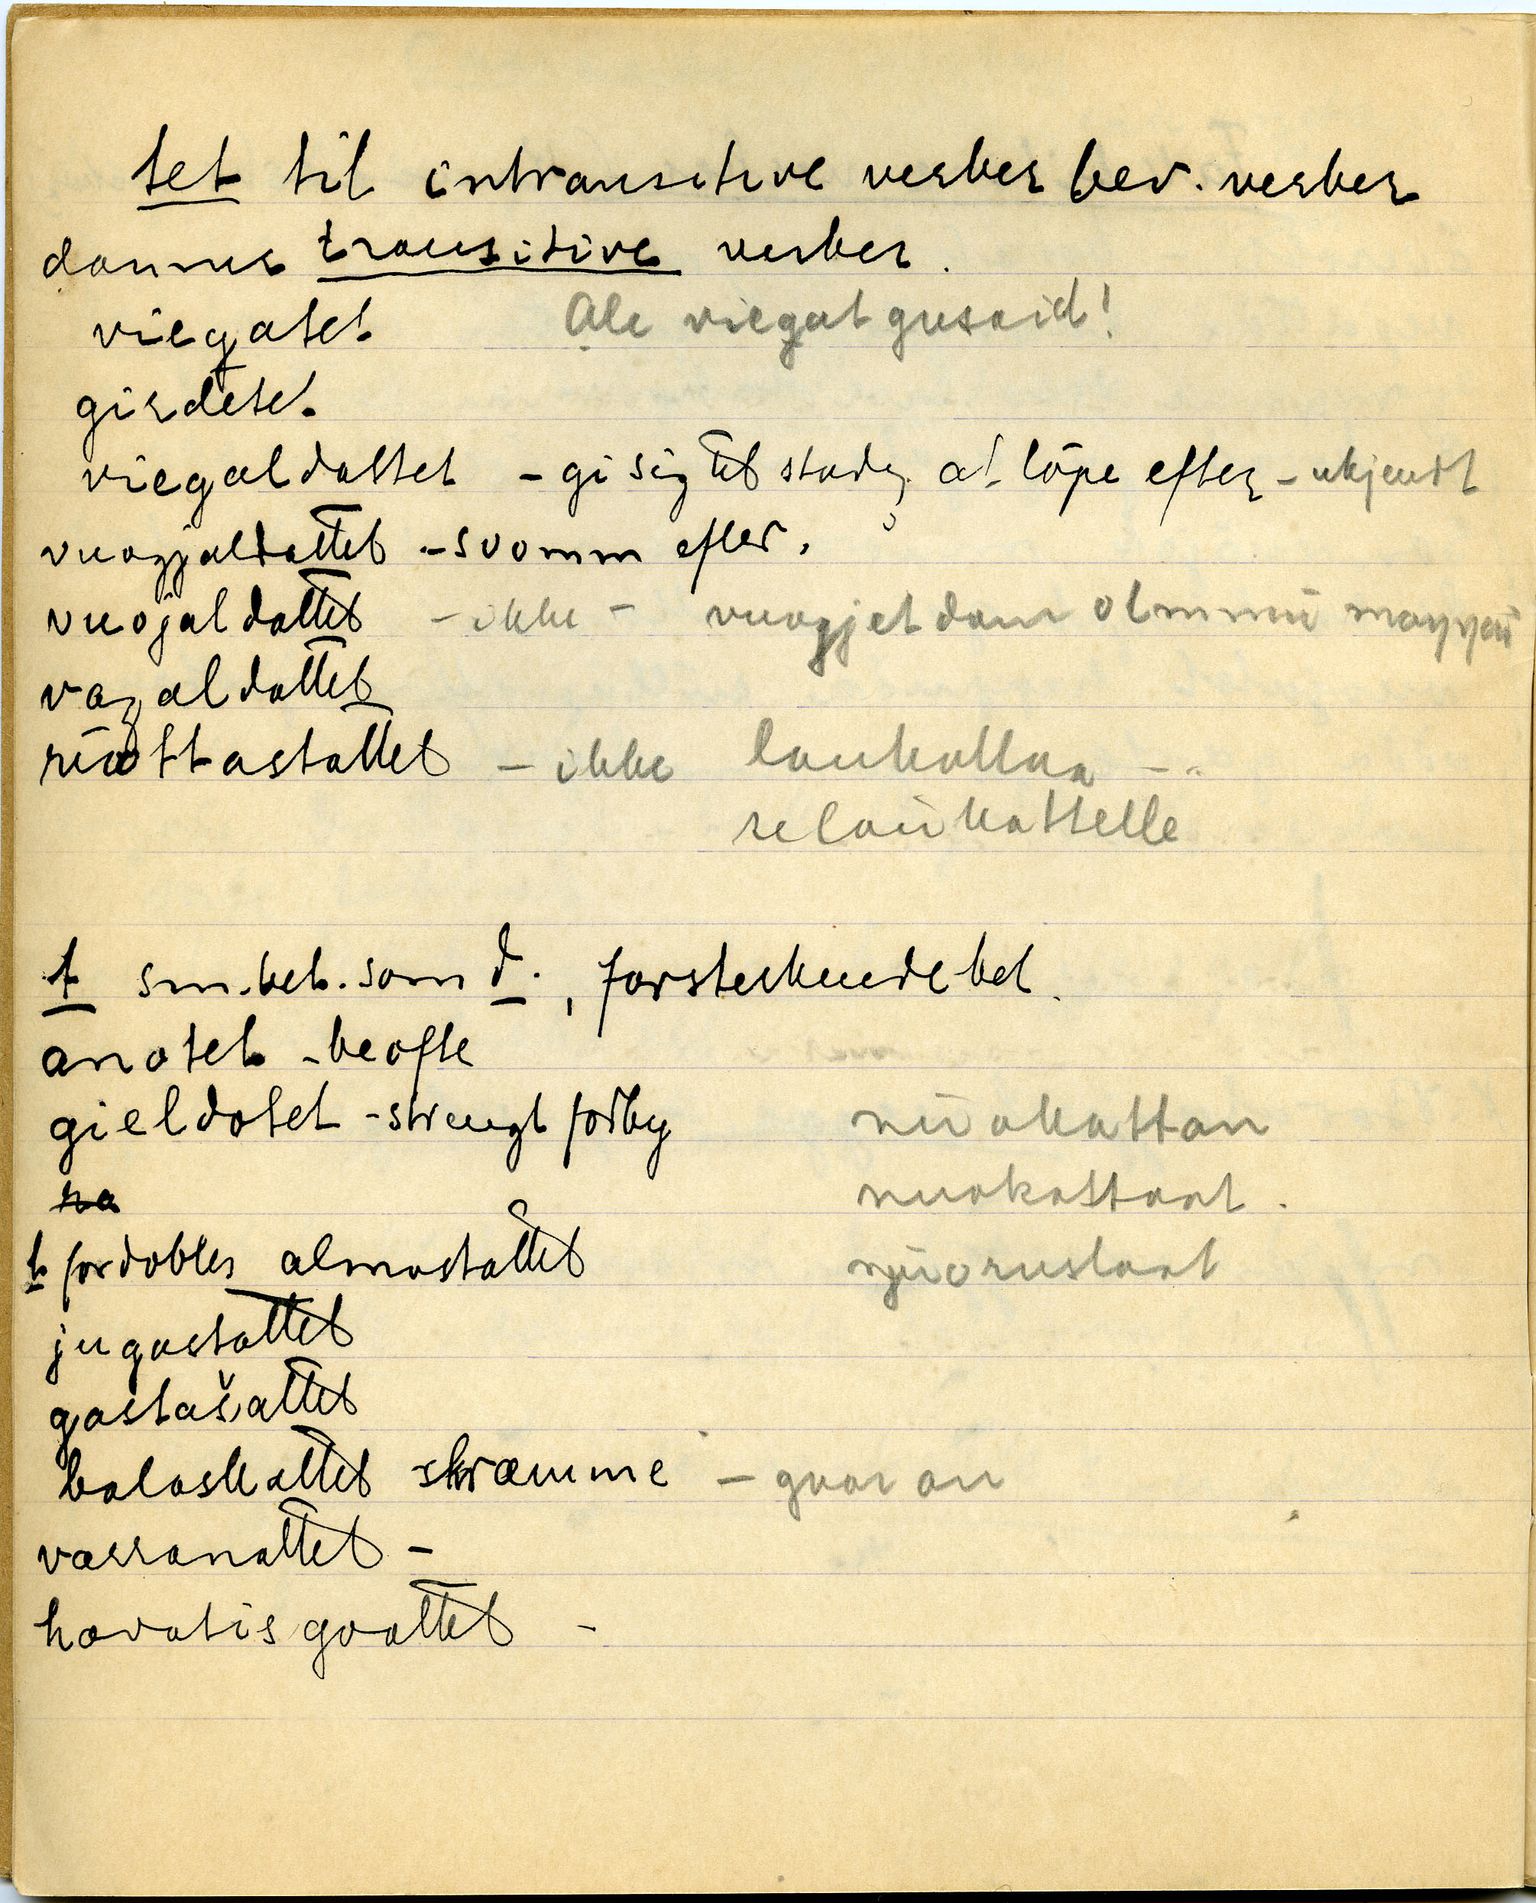 tet til intransitive verber bev. verber
danner transitive verber.
viegatet Ale viegat gusaid!
girdetet.
viegaldattet - gi sig til stadig at löpe efter - ukjendt
vuogjaldattet - svömm efter.
vuojaldattet - ikke - vuogjet dam olmmu maŋŋai
vazaldattet
rüottastattet - ikke laukallaa -
se laukattelle
t sm. bet. som d., forsterkende bet.
anotet - be ofte
gieldotet - strengt forby nüokattan
na nuokattaat.
t fordobles almostattet njüorustaat
jugastattet
gastašattet
balaskattet skræmme - gvoran
vassanattet -
havatisgoattet -